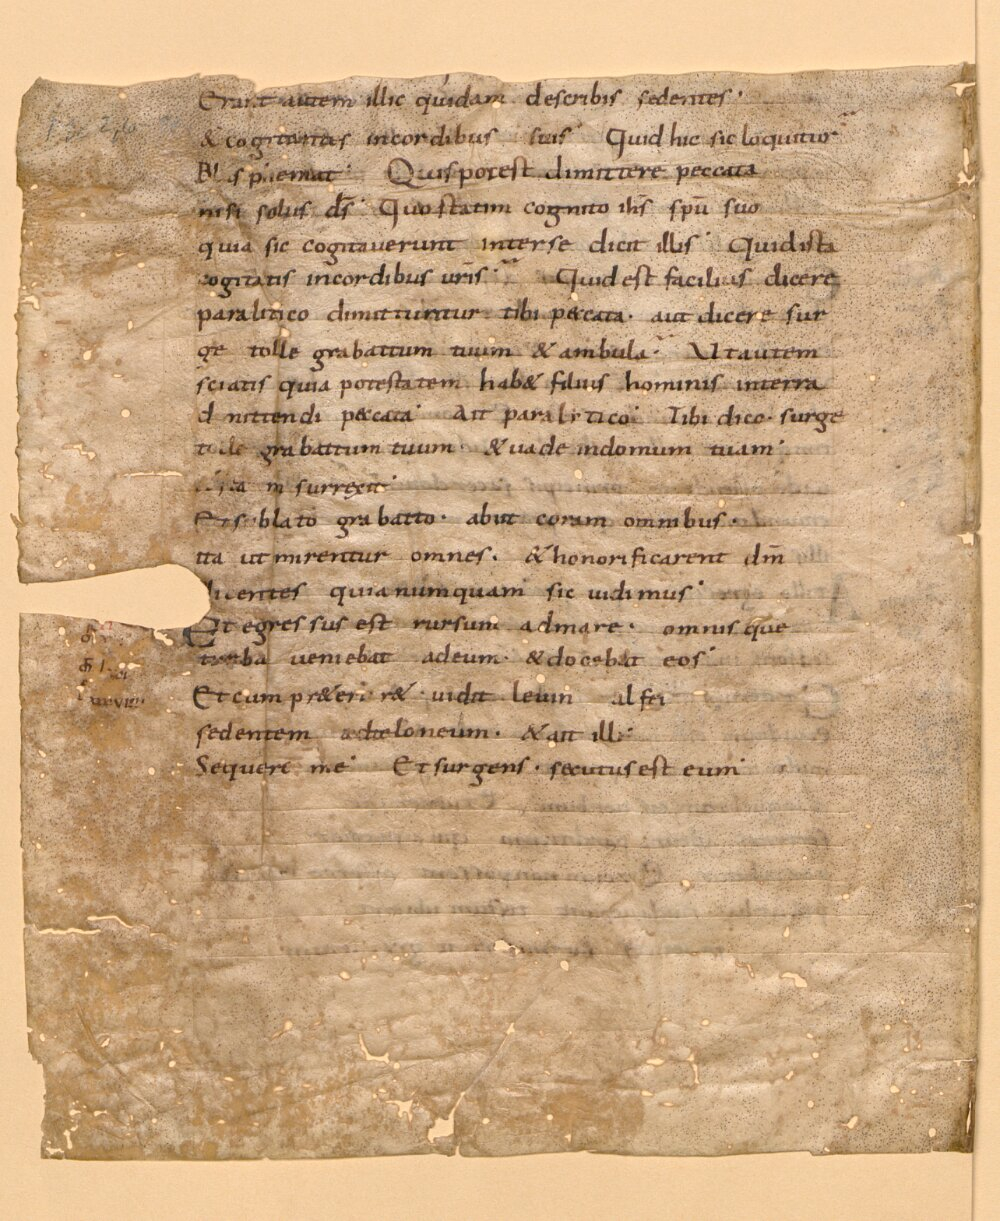 Erant autem illic quidam describis sedentes·
& cogitantes incordibus suis· Quid hic sic loquitur
Blasphemat· Quis potest dimittere peccata
nisi solus ds̄· Quo statim cognito ihs̄ spū suo
quia sic cogitaverunt interse dicit illis· Quid ista
cogitatis incordibus vr̄is· Quid est facilius dicere
paralitico dimittuntur tibi peccata· aut dicere sur
ge tolle grabattum tuum & ambula· Ut autem
sciatis quia potestatem hab& filius hominis interra
dimittendi peccata· Ait paralytico· Tibi dico· surge
tolle grabattum tuum & uade indomum tuam·
surrexit·
Et sublato grabatto· abiit coram omnibus·
ita ut mirentur omnes· & honorificarent dm̄
dicentes quia numquam sic uidimus·
Et egressus est rursum admare· omnisque
turba ueniebat adeum· & docebat eos·
Et cum pr&erir&· uidit leuin alfei
sedentem adteloneum· & ait illi·
Sequere me· Et surgens· secutus est eum·